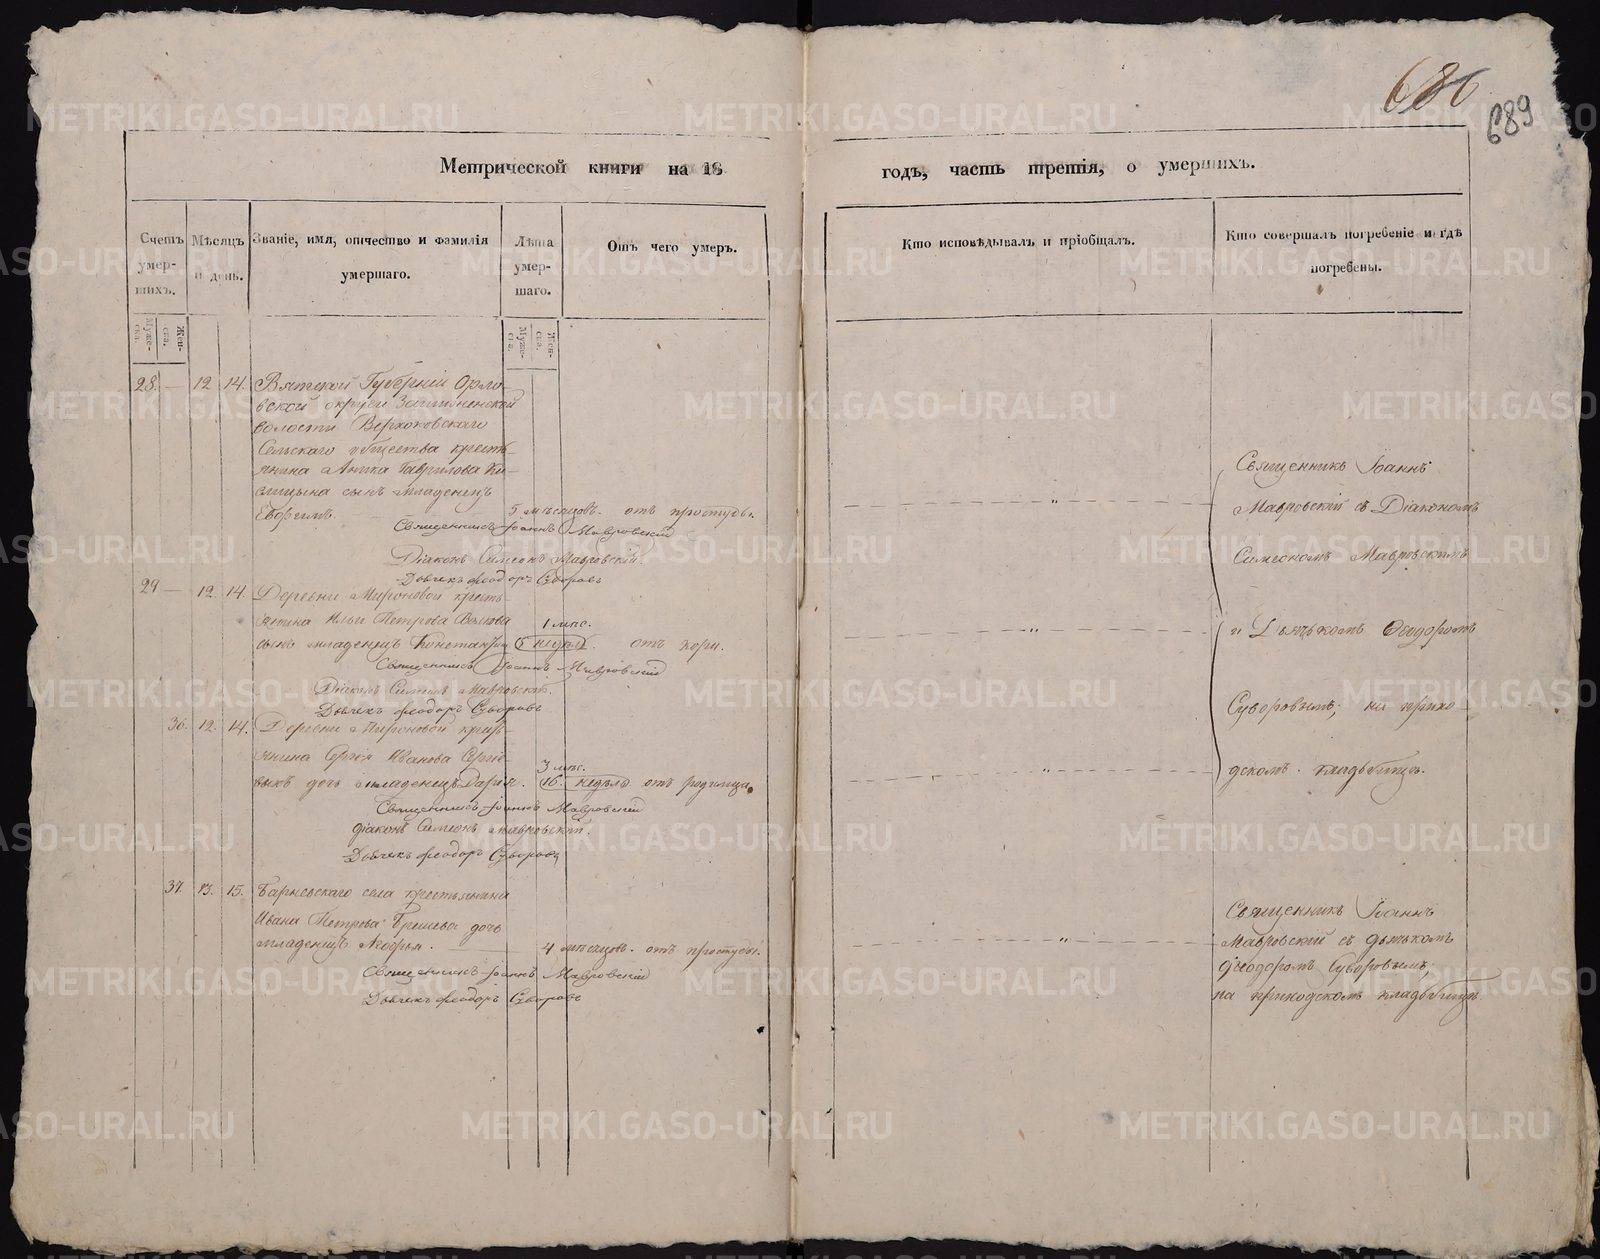 686
689
Метрической книги на 18
годъ, часть третія, о умершихъ.
Счетъ умер-шихъ.
Мѣсяцъ и день.
Званіе, имя, отчество и фамилія умершаго.
Лѣта умер-шаго.
Отъ чего умеръ.
Кто исповѣдывалъ и пріобщалъ.
Кто совершалъ погребеніе и гдѣ погребены.
Муже-ска.
Жен-ска.
Муже-ска.
Жен-ска.
28. — 12 14. Вятской Губерніи Орло-
вской округи
волости Верхоковскаго
Сельскаго общества кресть-
янина Аника Гаврилова Ки-
сынъ младенецъ
5 мѣсяцовъ. отъ простуды.
Священникъ Іоаннъ Мавровскій
Діаконъ Симеонъ Мавровскій.
Дьячекъ Феодоръ Суворовъ
29 — 12. 14. Деревни Мироновой кресть-
янина Ильи Петрова
1 мѣс.
сынъ младенецъ Констант 5 недѣл. отъ кори.
Священникъ Іоаннъ Мавровскій
Діаконъ Симеонъ Мавровскій.
Дьячекъ Феодоръ Суворовъ
36. 12. 14. Деревни Мироновой кресть-
янина Сергѣя Иванова Сергѣе
3 мѣс.
выхъ дочь младенецъ Дарья. 16. недѣль отъ родимца.
Священникъ Іоаннъ Мавровскій
Діаконъ Симеонъ Мавровскій.
Дьячекъ Феодоръ Суворовъ
37. 13. 15. Барневскаго села крестьянина
Ивана Петрова дочь
младенецъ
4 мѣсяцовъ. отъ простуды.
Священникъ Іоаннъ Мавровскій
Дьячекъ Феодоръ Суворовъ
Священникъ Іоаннъ
Мавровскій съ Діакономъ
Симеономъ Мавровскимъ
и Дьячкомъ Феодоромъ
Суворовымъ, на прихо-
дскомъ кладбищѣ.
Священникъ Іоаннъ
Мавровскій съ дьячкомъ
Феодоромъ Суворовымъ
на приходскомъ кладбищѣ.
METRIKI.GASO-URAL.RU